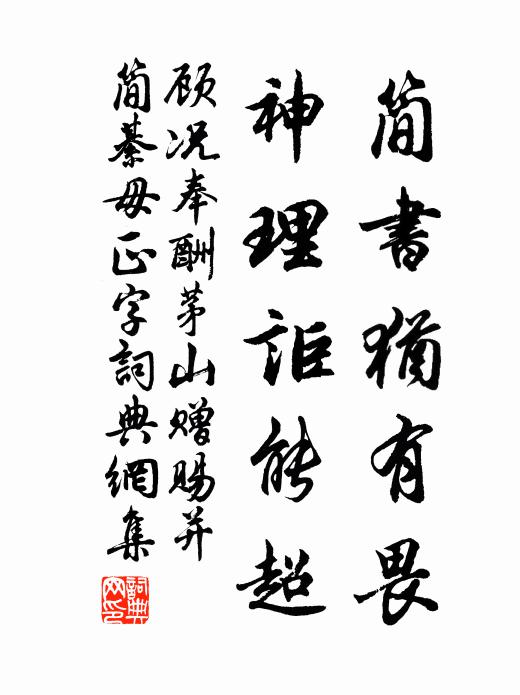 简書猶有畏
神理詎能超
顾况奉酬茅山赠賜并
简綦毋正字詞典網集
詞典网印